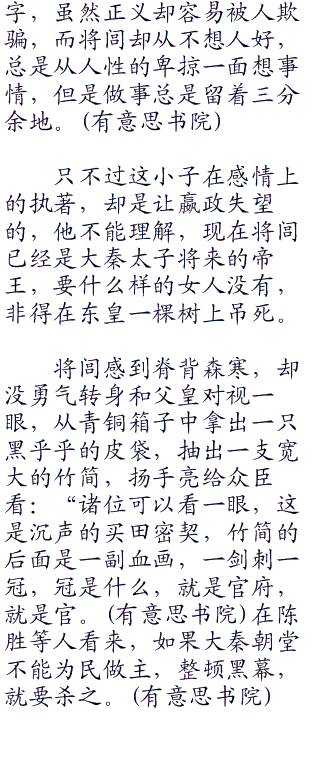 字，虽然正义却容易被人欺
骗，而将闾却从不想人好，
总是从人性的卑掠一面想事
情，但是做事总是留着三分
余地。(有意思书院)
只不过这小子在感情上
的执著，却是让嬴政失望
的，他不能理解，现在将闾
已经是大秦太子将来的帝
王，要什么样的女人没有，
非得在东皇一棵树上吊死。
将闾感到脊背森寒，却
没勇气转身和父皇对视一
眼，从青铜箱子中拿出一只
黑乎乎的皮袋，抽出一支宽
大的竹简，扬手亮给众臣
看：“诸位可以看一眼，这
是沉声的买田密契，竹简的
后面是一副血画，一剑刺一
冠，冠是什么，就是官府，
就是官。(有意思书院)在陈
胜等人看来，如果大秦朝堂
不能为民做主，整顿黑幕，
就要杀之。(有意思书院)